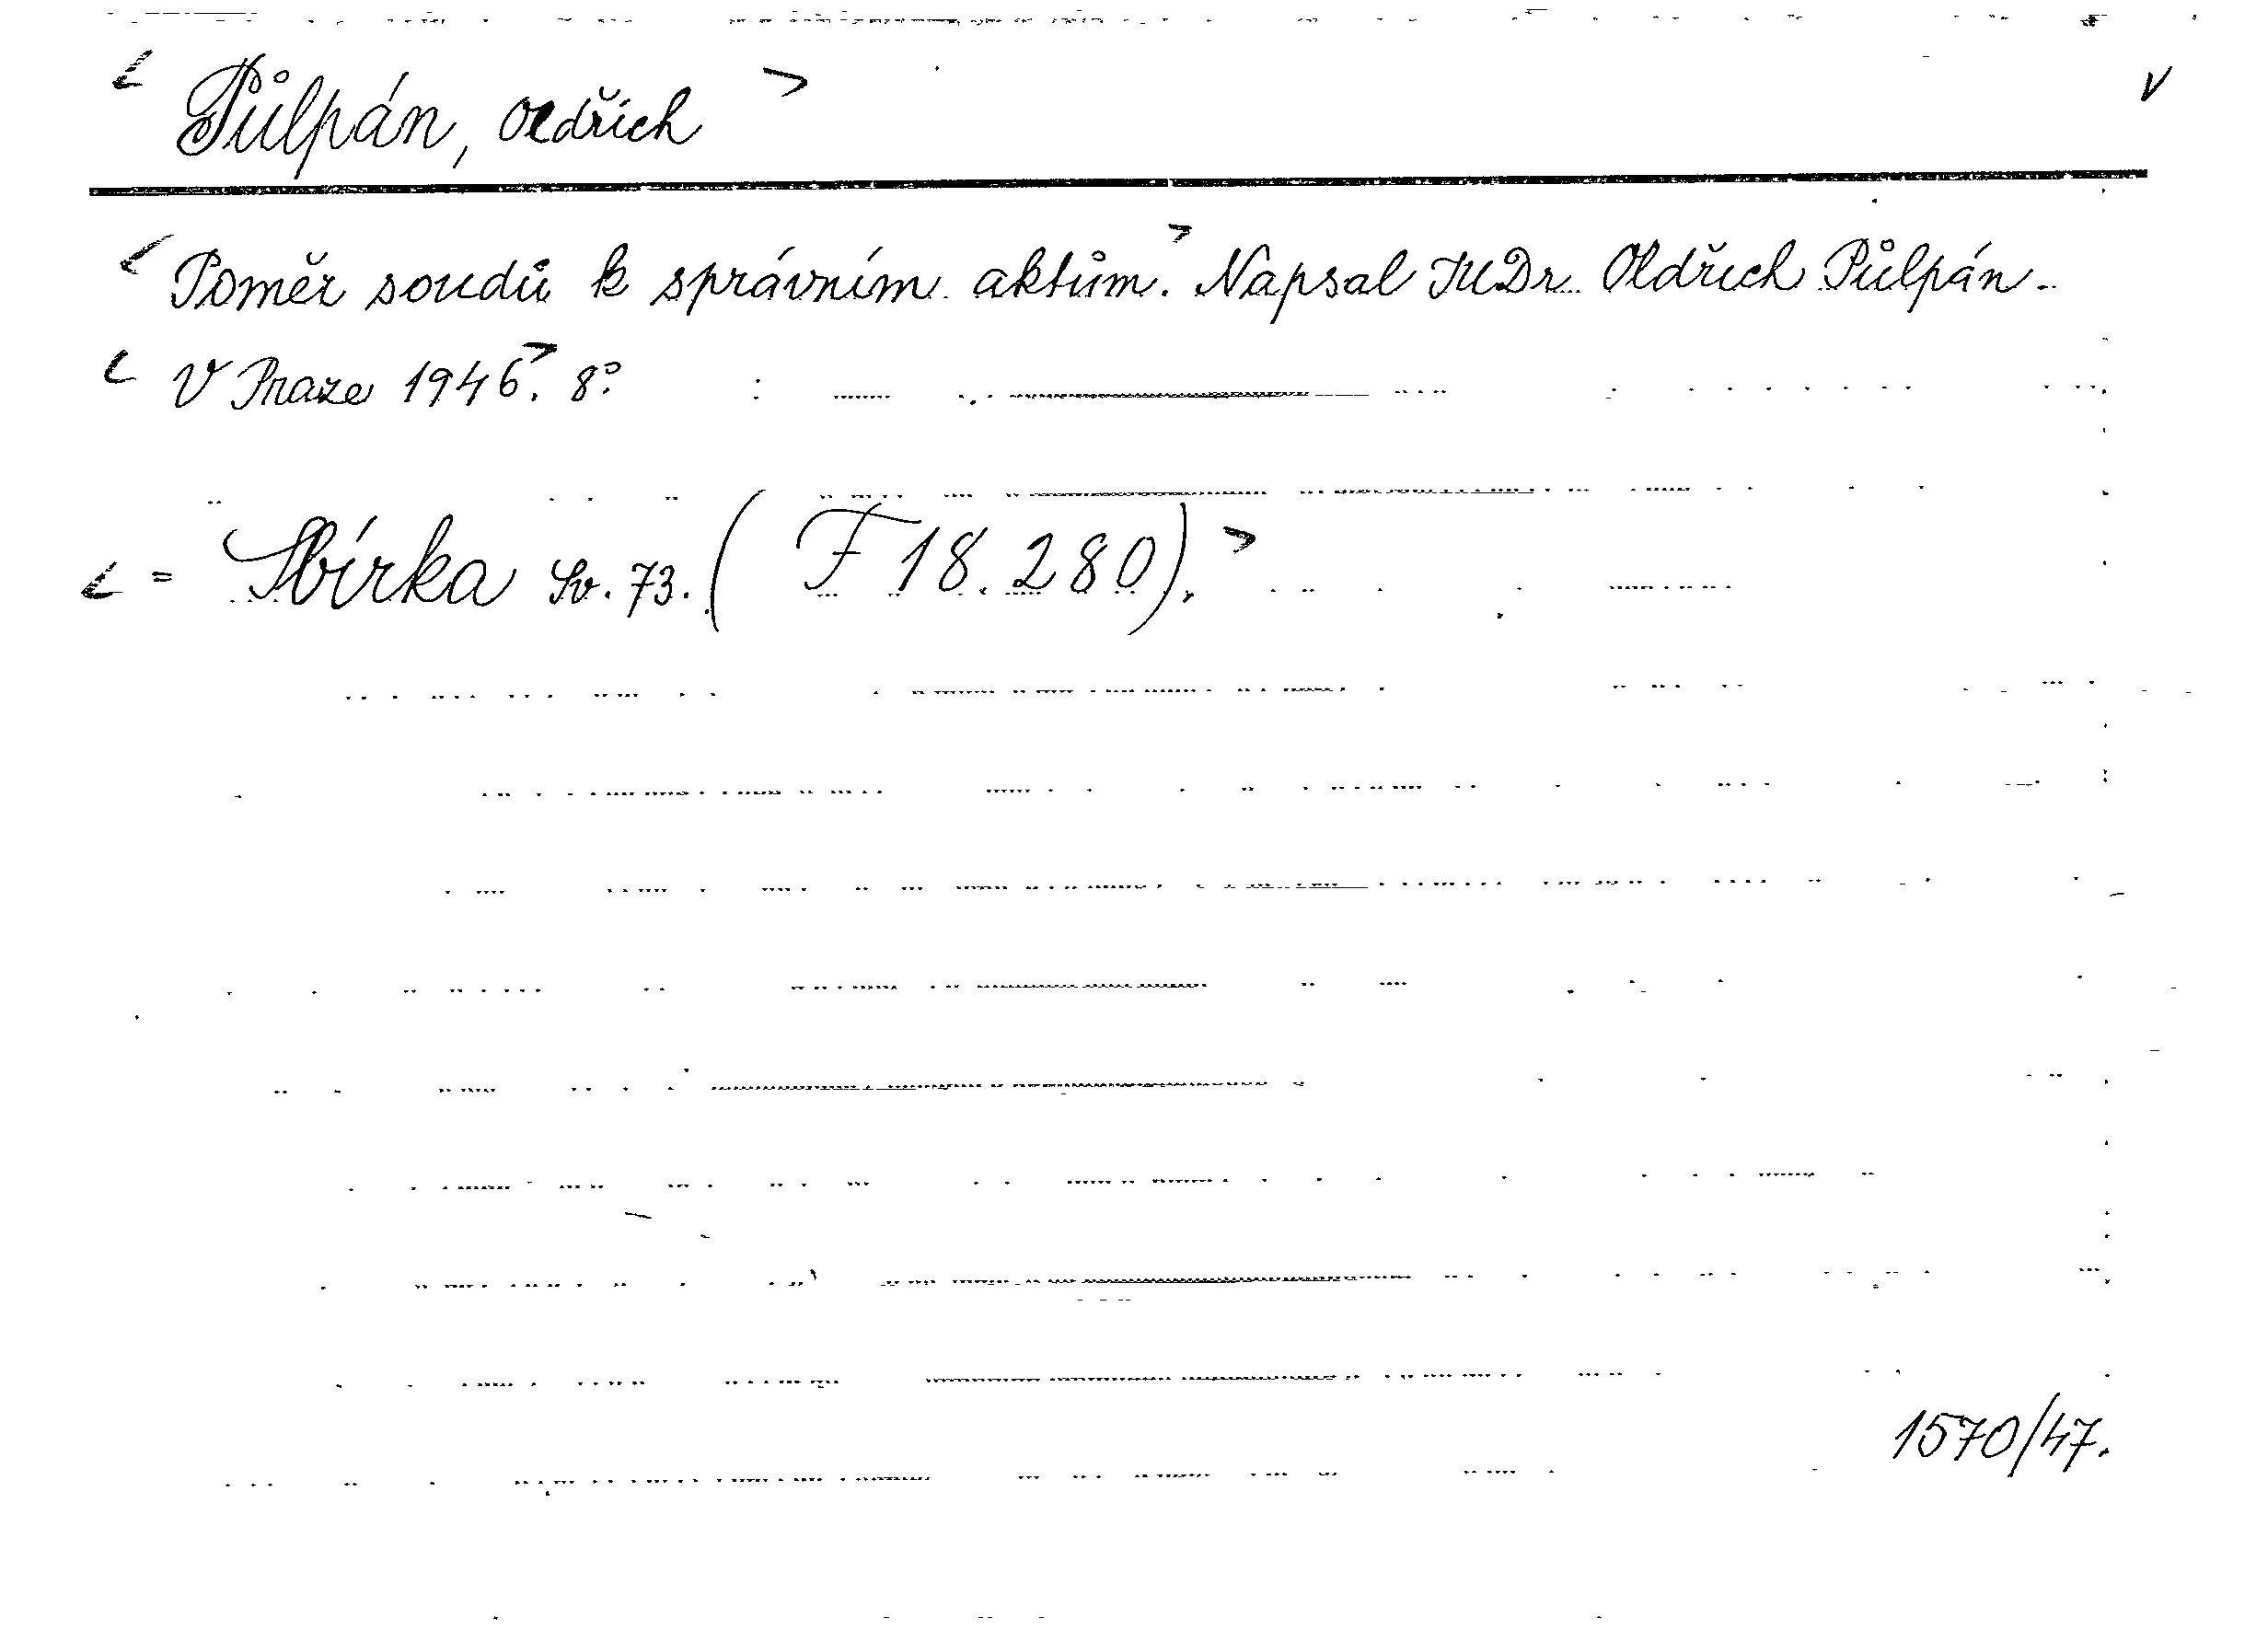 < Půlpán, Oldřich > v
< Poměr soudů k správním aktům.> Napsal JUDr. Oldřich Půlpán.
< V Praze 1946>. 8°.
< = Sbírka sv. 73. (F 18.280).>
1570/47.